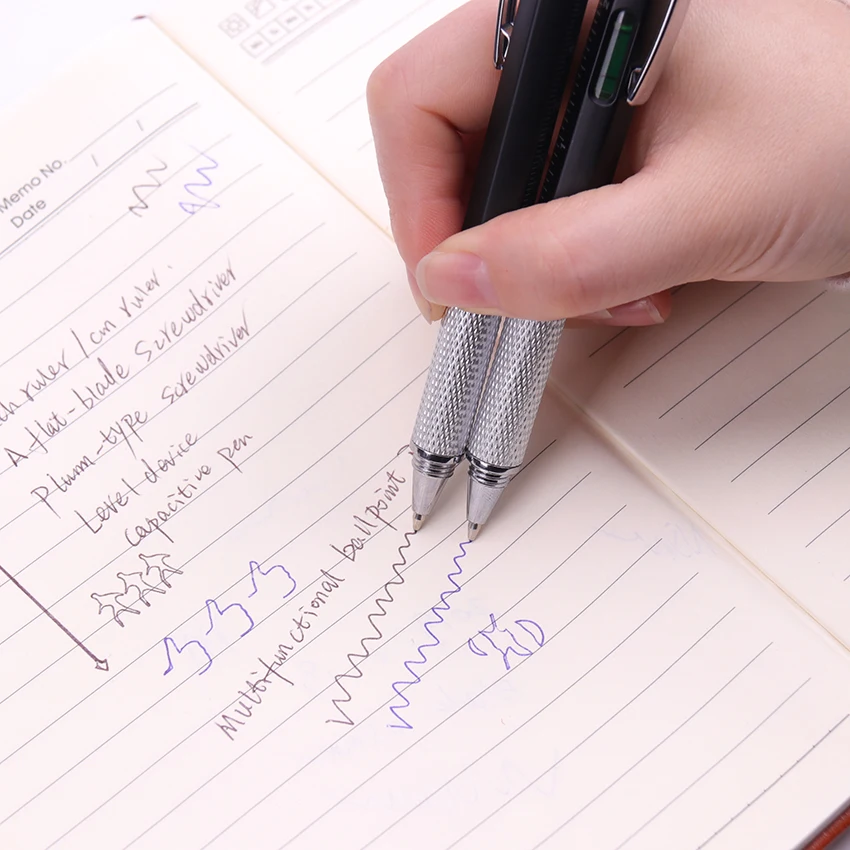 Memo No.
Date / /
ruler / cm ruler.
A flat-blade screwdriver
Plum-type screwdriver
Level device
capacitive pen
Multifunctional ballpoint